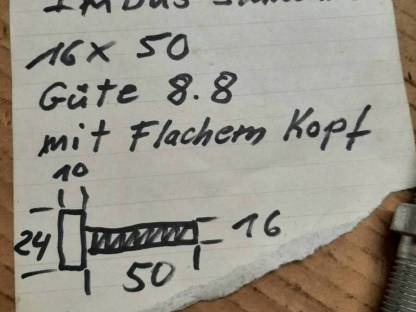 Imbus
16 x 50
Güte 8.8
mit Flachem Kopf
10
24
16
50